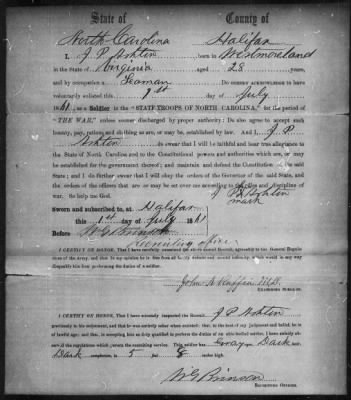 State of County of
North Carolina Halifax
I, J. P. Ashton born in Westmoreland
in the State of Virginia aged 28 years,
and by occupation a Seaman Do HEREBY ACKNOWLEDGE to have
voluntarily enlisted this 1st day of July
1861, as a Soldier in the "STATE TROOPS OF NORTH CAROLINA," for the period of
"THE WAR," unless sooner discharged by proper authority: Do also agree to accept such
bounty, pay, rations and clothing as are, or may be, established by law. And I, J P.
Ashton do swear that I will be faithful and bear true allegiance to
the State of North Carolina and to the Constitutional powers and authorities which are, or may
be established for the government thereof; and maintain and defend the Constitution of the said
State; and I do further swear that I will obey the orders of the Governor of the said State, and
the orders of the officers that are or may be set over me according to the rules and discipline of
war. So help me God. J P X Ashton
mark
Sworn and subscribed to, at Halifax
this 1st day of July 1861
Before W G Brinson
Recruiting officer
I CERTIFY ON HONOR, That I have carefully examined the above named recruit, agreeably to the General Regulations
of the Army, and that in my opinion he is free from all bodily defects and mental infirmity, which would in any way
disqualify him from performing the duties of a soldier.
John K Ruffin M.D.
EXAMINING SURGEON.
I CERTIFY ON HONOR, That I have minutely inspected the Recruit, J. P. Ashton
previously to his enlistment, and that he was entirely sober when enlisted: that, to the best of my judgment and belief, he is
of lawful age; and that, in accepting him as duly qualified to perform the duties of an able-bodied soldier, I have strictly observed
the regulations which govern the recruiting service. This soldier has Gray eyes Dark hair
Dark complexion, is 5 feet 8 inches high.
W G Brinson
RECRUITING OFFICER.